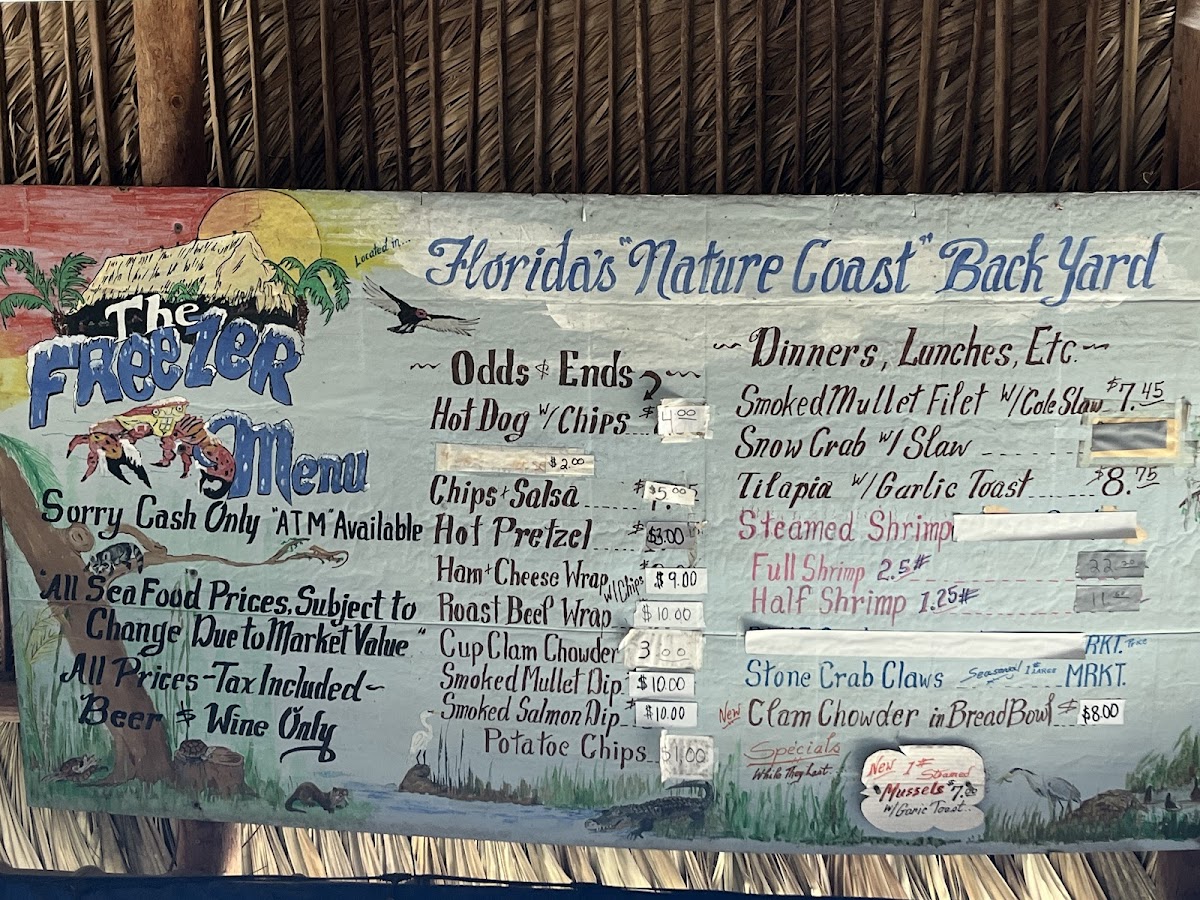 Located in...
Florida's "Nature Coast" Back Yard
The
FReezeR
Menu
Sorry Cash Only "ATM" Available
"All Sea Food Prices, Subject to
Change Due to Market Value"
All Prices-Tax Included~
Beer & Wine Only
~~ Odds & Ends ~~
Hot Dog w/ Chips $4.00
$2.00
Chips + Salsa $5.00
Hot Pretzel $3.00
Ham + Cheese Wrap w/ Chips $9.00
Roast Beef Wrap $10.00
Cup Clam Chowder 3.00
Smoked Mullet Dip $10.00
Smoked Salmon Dip $10.00
Potatoe Chips $1.00
~~ Dinners, Lunches, Etc. ~~
Smoked Mullet Filet w/ Cole Slaw $7.45
Snow Crab w/ Slaw
Tilapia w/ Garlic Toast $8.75
Steamed Shrimp
Full Shrimp 2.5# 22.00
Half Shrimp 1.25# 11.00
RKT. Price
Stone Crab Claws Seasonal 1# Large MRKT.
New Clam Chowder in Bread Bowl $ $8.00
Specials
While They Last.
New 1# Steamed
Mussels $7.00
w/ Garic Toast..